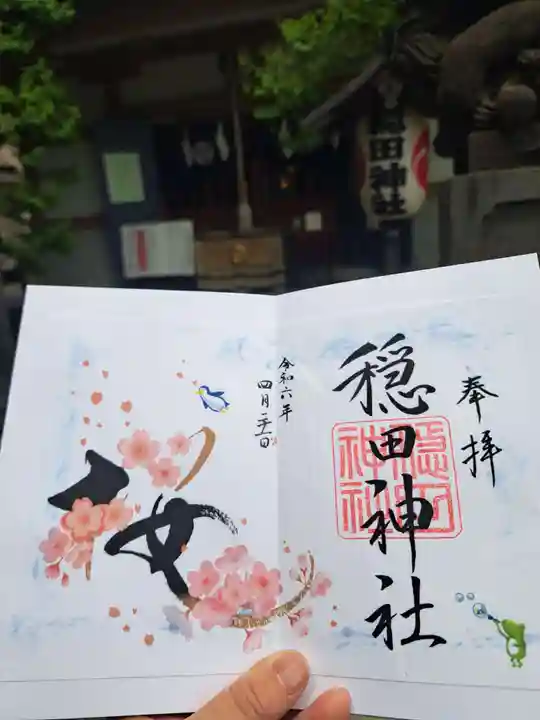 奉拝
穏田神社
穏田神社
令和六年
四月二十一日
桜
田神社